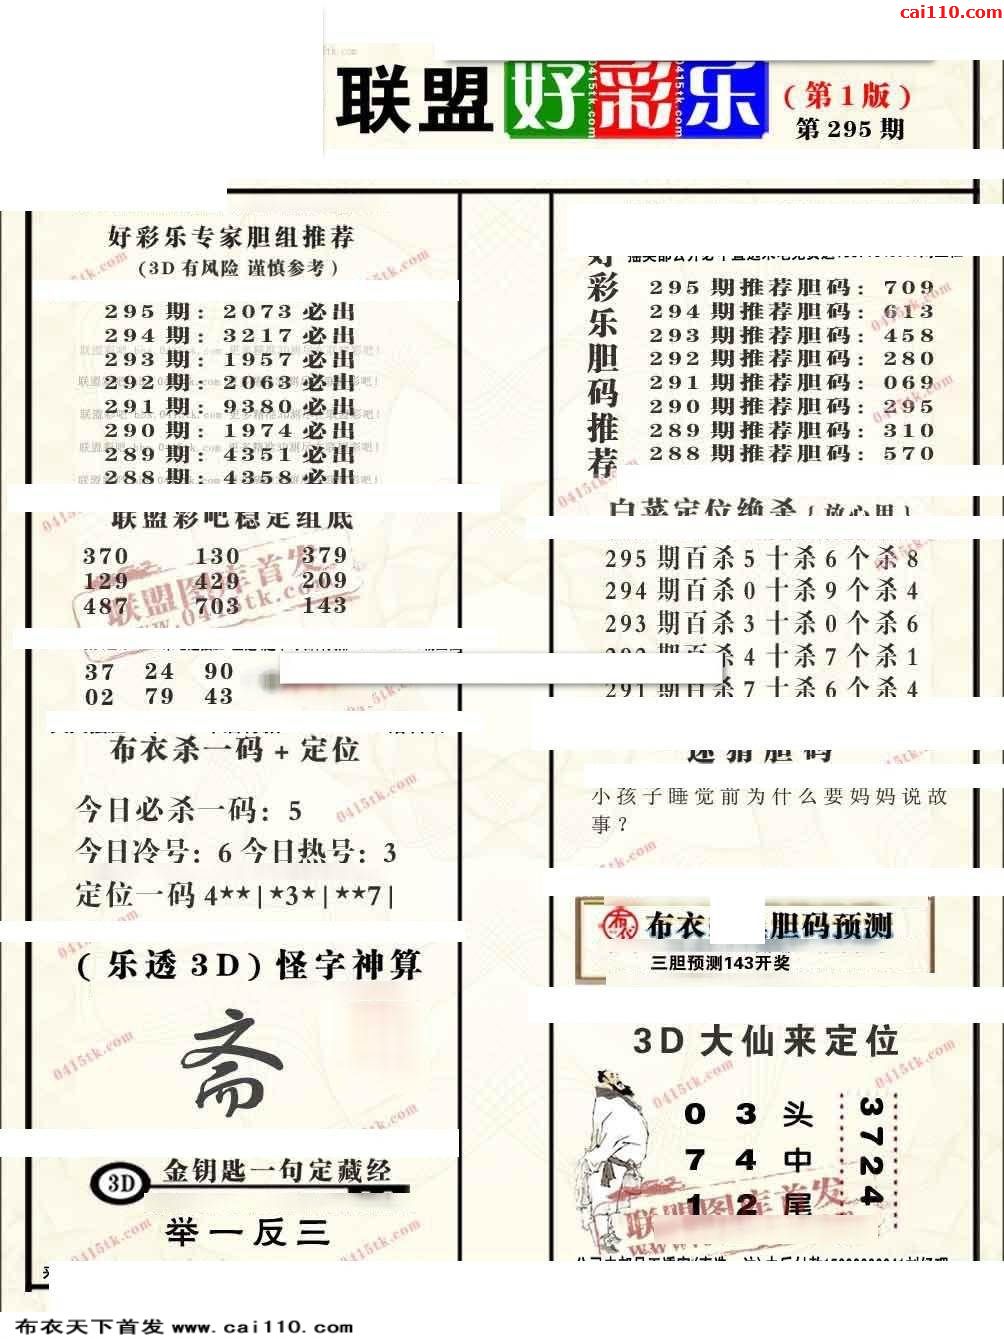 cai110.com
联盟好彩乐
(第1版)
第295期
好彩乐专家胆组推荐
(3D有风险 谨慎参考)
295期: 2073必出
294期: 3217必出
293期: 1957必出
292期: 2063必出
291期: 9380必出
290期: 1974必出
289期: 4351必出
288期: 4358必出
联盟彩吧稳定组底
370 130 379
129 429 209
487 703 143
37 24 90
02 79 43
布衣杀一码+定位
今日必杀一码: 5
今日冷号: 6 今日热号: 3
定位一码4**|*3*|**7|
(乐透3D)怪字神算
斋
3D 金钥匙一句定藏经
举一反三
好彩乐胆码推荐
295期推荐胆码: 709
294期推荐胆码: 613
293期推荐胆码: 458
292期推荐胆码: 280
291期推荐胆码: 069
290期推荐胆码: 295
289期推荐胆码: 310
288期推荐胆码: 570
白菜定位绝杀{放心用}
295期百杀5十杀6个杀8
294期百杀0十杀9个杀4
293期百杀3十杀0个杀6
292期百杀4十杀7个杀1
291期百杀7十杀6个杀4
迷猜胆码
小孩子睡觉前为什么要妈妈说故
事?
布衣
胆码预测
三胆预测143开奖
3D大仙来定位
0 3 头
7 4 中
1 2 尾
3724
联盟图库首发
0415tk.com
布衣天下首发 www.cai110.com